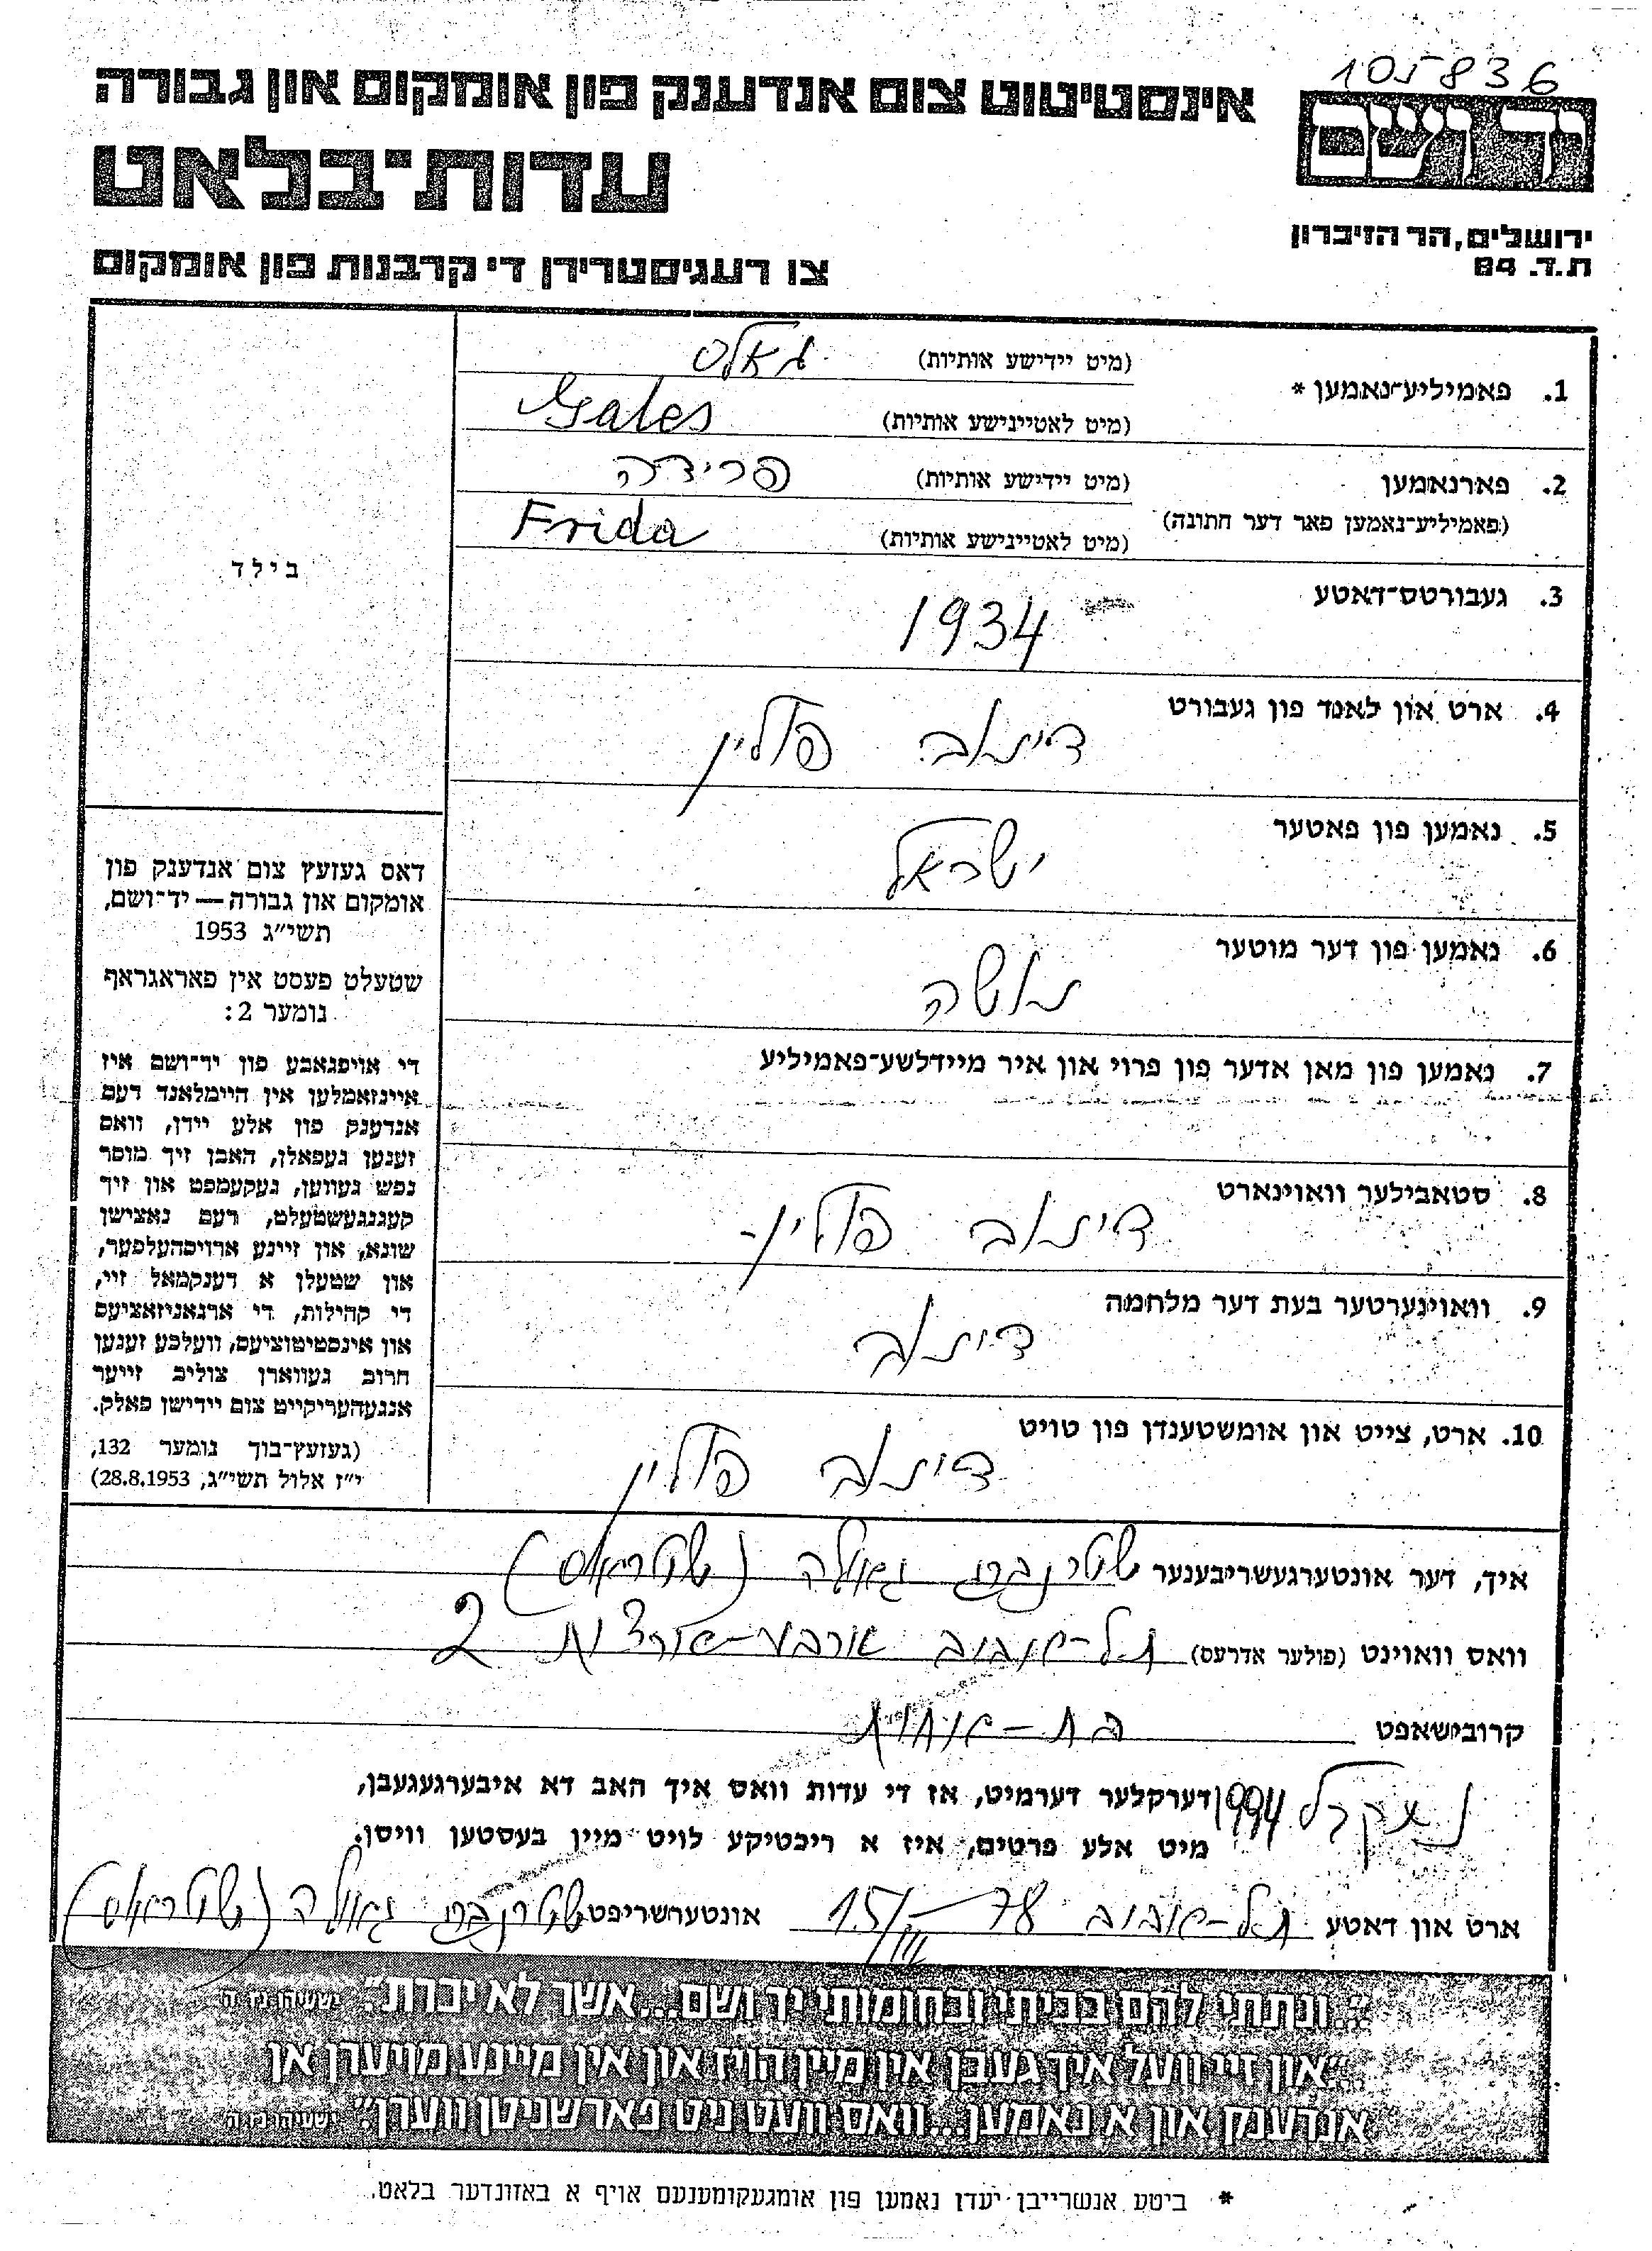 105836
אינסטיטוט צום אנדענק פון אומקום און גבורה
יד ושם
עדות־בלאט
ירושלים, הר הזיכרון
ת.ד. 84
צו רעגיסטרירן די קרבנות פון אומקום
1. פאמיליע־נאמען *
(מיט יידישע אותיות) גאלס
(מיט לאטיינישע אותיות) Gales
2. פארנאמען
(מיט יידישע אותיות) פרידה
(פאמיליע־נאמען פאר דער חתונה)
(מיט לאטיינישע אותיות) Frida
בילד
3. געבורטס־דאטע 1934
4. ארט און לאנד פון געבורט
דינוב פולין
5. נאמען פון פאטער
ישראל
6. נאמען פון דער מוטער
7. נאמען פון מאן אדער פון פרוי און איר מיידלשע־פאמיליע
8. סטאבילער וואוינארט
דינוב פולין
9. וואוינערטער בעת דער מלחמה
דינוב
10. ארט, צייט און אומשטענדן פון טויט
דינוב פולין
דאס געזעץ צום אנדענק פון
אומקום און גבורה — יד־ושם,
תשי״ג 1953
שטעלט פעסט אין פאראגראף
נומער 2:
די אויפגאבע פון יד־ושם איז
איינזאמלען אין היימלאנד דעם
אנדענק פון אלע יידן, וואס
זענען געפאלן, האבן זיך מוסר
נפש געווען, געקעמפט און זיך
קעגנגעשטעלט, דעם נאצישן
שונא, און זיינע ארויסהעלפער,
און שטעלן א דענקמאל זיי,
די קהילות, די ארגאניזאציעס
און אינסטיטוציעס, וועלכע זענען
חרוב געווארן צוליב זייער
אנגעהעריקייט צום יידישן פאלק.
(געזעץ־בוך נומער 132,
י״ז אלול תשי״ג, 28.8.1953)
איך, דער אונטערגעשריבענער שטרנברג גאולה (שטראוס)
וואס וואוינט (פולער אדרעס) תל-אביב ארבע-ארצות 2
קרובישאפט בת-אחות
דערקלער דערמיט, אז די עדות וואס איך האב דא איבערגעגעבן,
1994
מיט אלע פרטים, איז א ריכטיקע לויט מיין בעסטען וויסן.
ארט און דאטע תל-אביב 15/III-78 אונטערשריפט שטרנברג גאולה (שטראוס)
"...ונתתי להם בביתי ובחומותי יד ושם... אשר לא יכרת". ישעיהו נו, ה
"...און זיי וועל איך געבן אין מיין הויז און אין מיינע מויערן אן
אנדענק און א נאמען... וואס וועט ניט פארשניטן ווערן". ישעיהו נו, ה
* ביטע אנשרייבן יעדן נאמען פון אומגעקומענעם אויף א באזונדער בלאט.